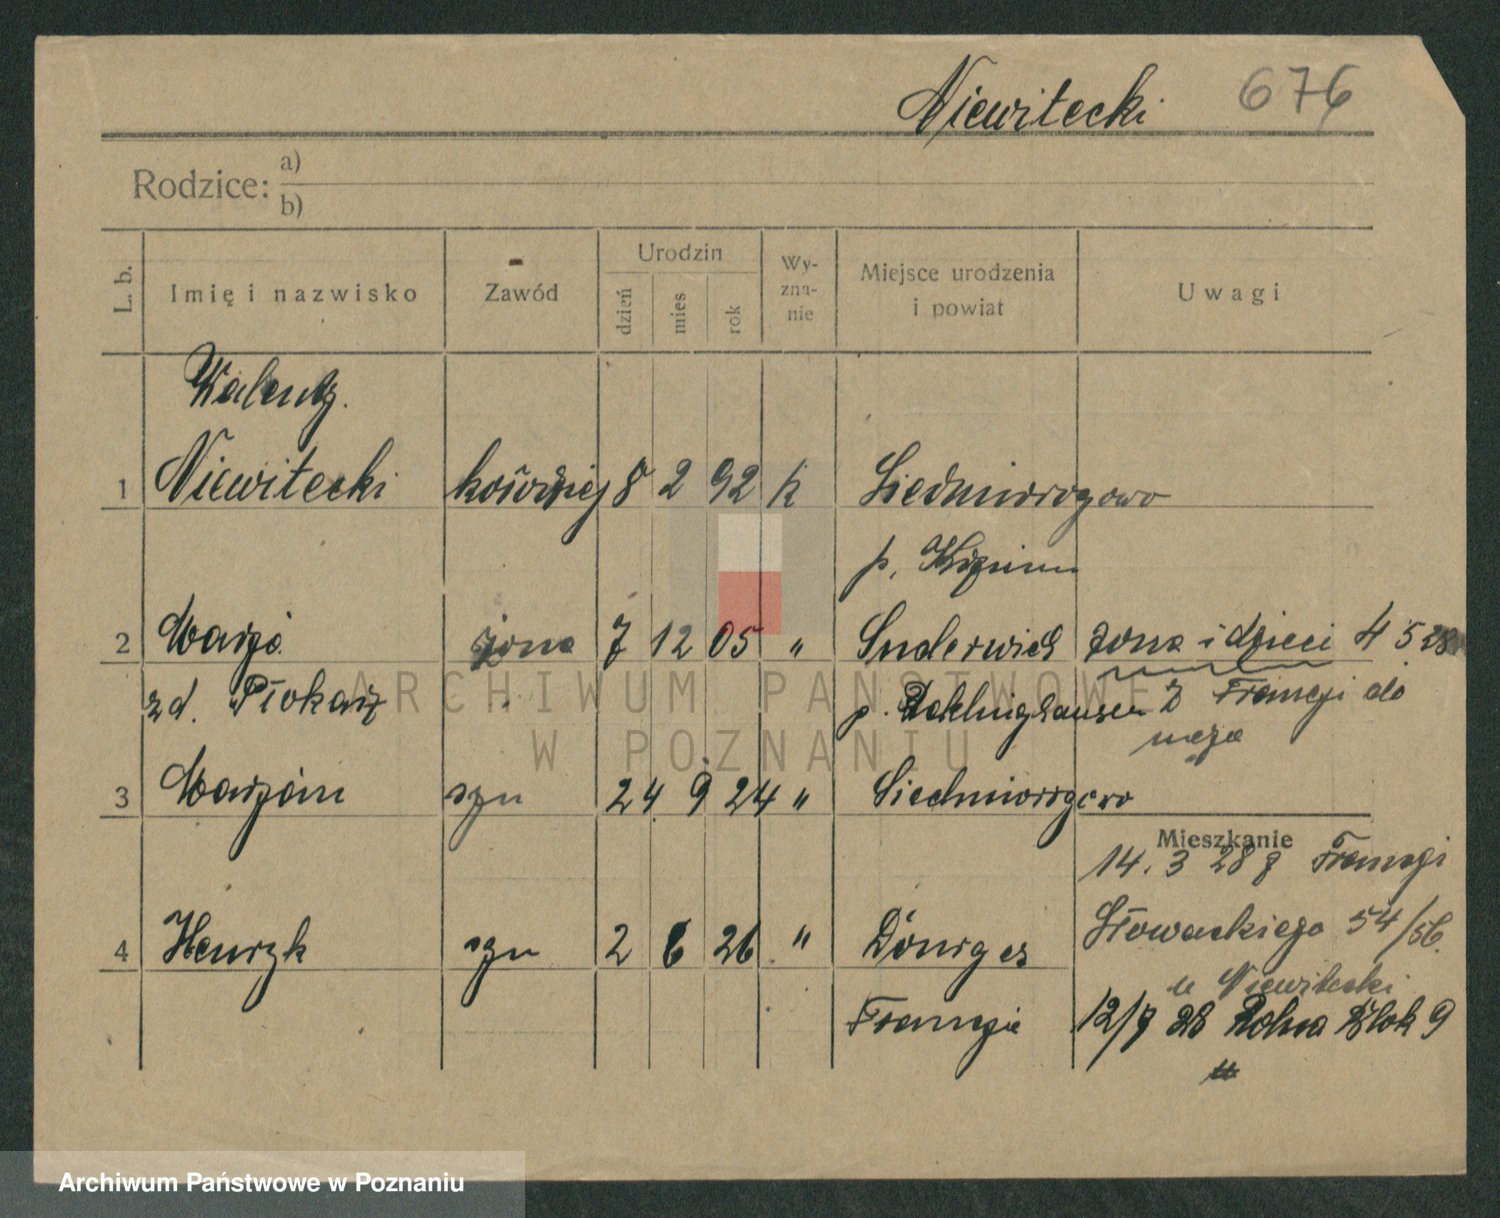 Niewitecki 676
Rodzice: a)
b)
L. b. Imię i nazwisko Zawód Urodzin dzień mies rok Wy-zna-nie Miejsce urodzenia i powiat Uwagi
Walenty.
1 Niewitecki 8 2 92 k Siedmiorogowo
p.
2 Marja żona 7 12 05 " Suderwich żona i dzieci 4 5 28
zd. p. Recklinghausen z Francji do
męża
3 Marjan syn 24 9 24 " Siedmiorogowo
Mieszkanie
14. 3 28 z Francji
Słowackiego 54/56.
4 Henryk syn 2 6 26 " Dourges
u Niewitecki
Francja 12/7 28 Polna Blok 9
ARCHIWUM PAŃSTWOWE
W POZNANIU
Archiwum Państwowe w Poznaniu